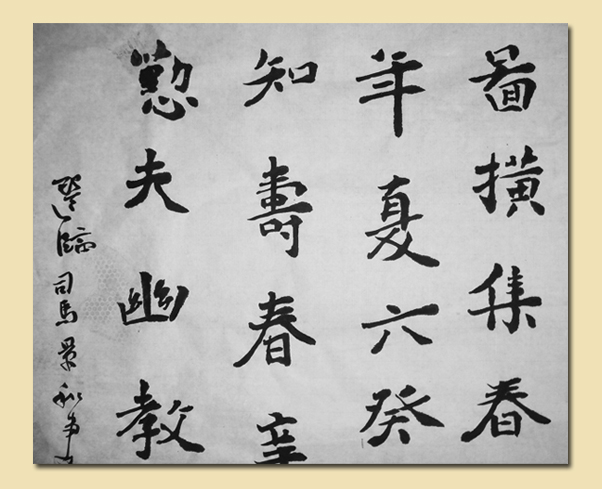 啚撗集春
年夏六癸
知壽春
懃夫幽教
臨司馬景和